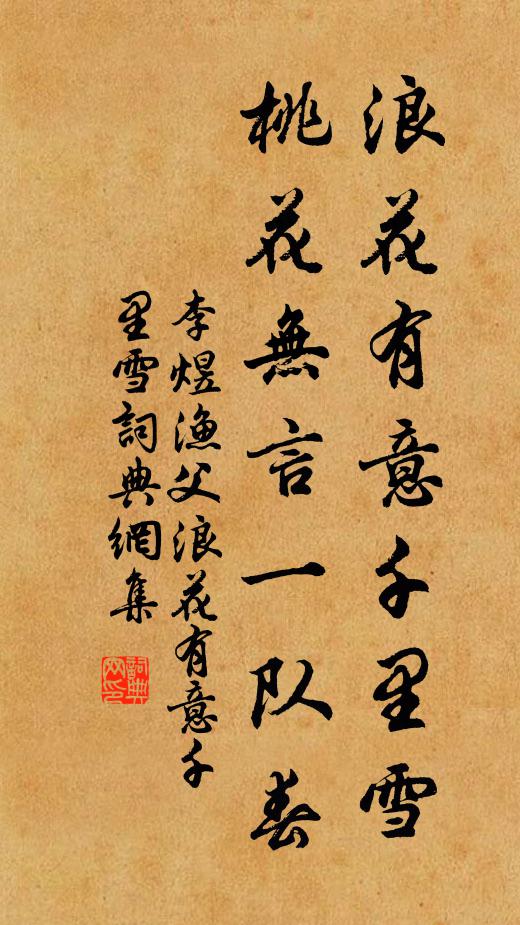 浪花有意千里雪
桃花無言一队春
李煜漁父浪花有意千
里雪詞典網集
詞典
网印